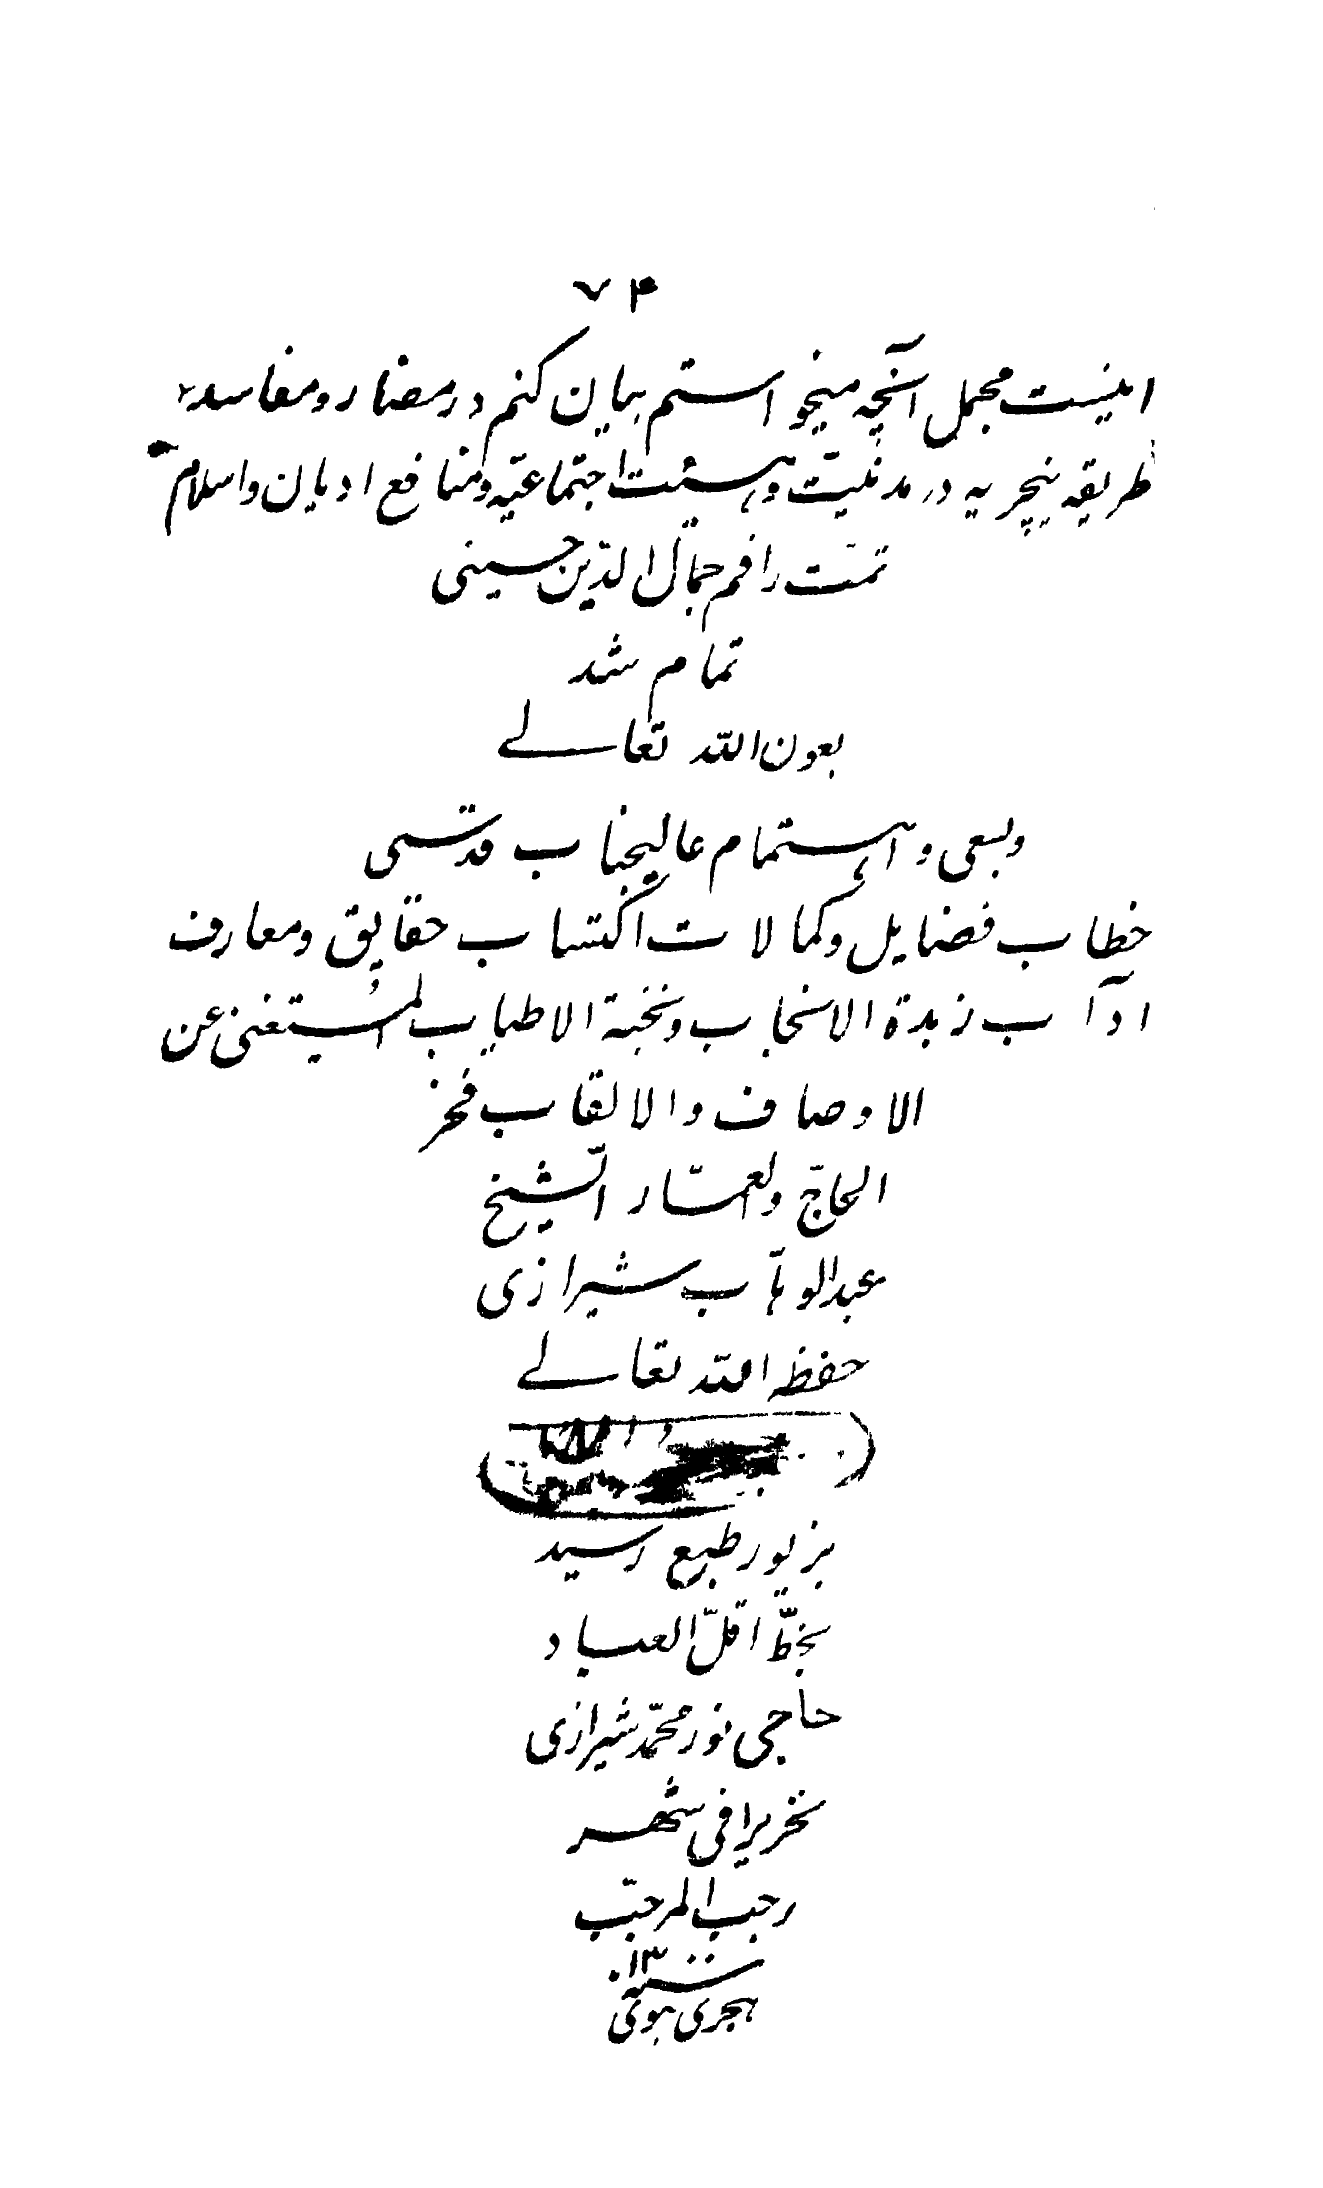 ۷۴
اینست مجمل آنچه میخواستم بیان کنم در مضار و مفاسد
طریقه نیچریه در مدنیّت و هیئت اجتماعیّه و منافع ادیان و اسلام
تمّت راقم جمال الدّین حسینی
تمام شد
بعون اللّه تعالے
و بسعی و اهتمام عالیجناب قدسی
خطاب فضایل و کمالات اکتساب حقایق و معارف
اداب زبدة الانجاب و نخبة الاطیاب المُستغنی عن
الاوصاف والالقاب فخر
الحاجّ والعمّار الشّیخ
عبدالوهّاب شیرازی
حفظه اللّه تعالے
بزیور طبع رسید
بخطّ اقلّ العباد
حاجی نور محمّد شیرازی
تحریرا فی شهر
رجب المرجّب
سنه ۱۳۰۰
هجری نبوی